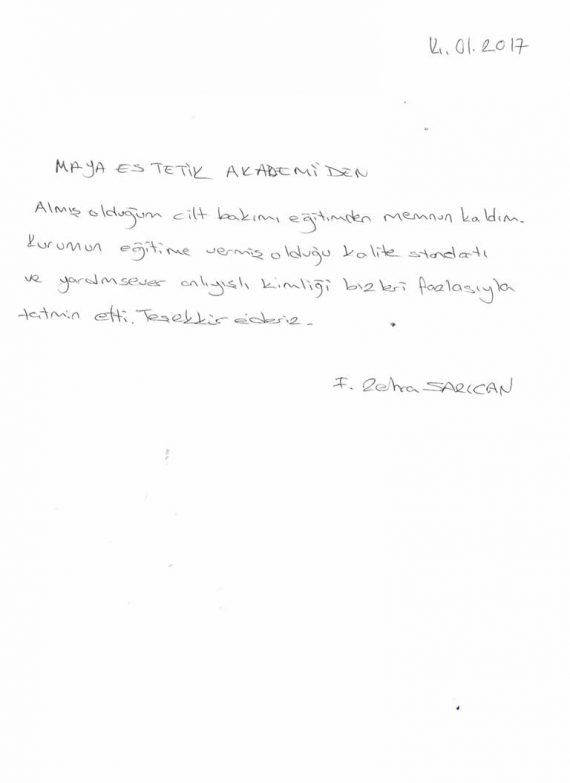 .01.2017
MAYA ESTETİK AKADEMİ'DEN
Almış olduğum cilt bakımı eğitimden memnun kaldım.
Kurumun eğitime vermiş olduğu kalite standartı
ve yardımsever anlayışlı kimliği bizleri fazlasıyla
tatmin etti. Teşekkür ederiz.
F. Zehra SARICAN